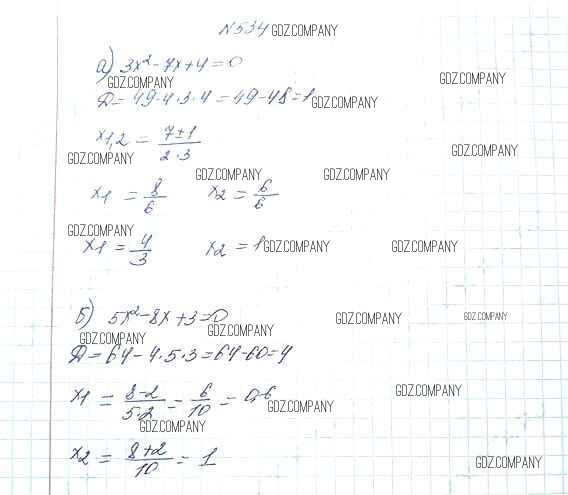 N534 GDZ.COMPANY
а) 3x² - 7x + 4 = 0
GDZ.COMPANY GDZ.COMPANY
Д = 49 - 4·3·4 = 49 - 48 = 1 GDZ.COMPANY
x1,2 = (7±1)/(2·3)
GDZ.COMPANY GDZ.COMPANY
GDZ.COMPANY GDZ.COMPANY
x1 = 8/6 x2 = 6/6
GDZ.COMPANY
x1 = 4/3 x2 = 1 GDZ.COMPANY GDZ.COMPANY
б) 5x² - 8x + 3 = 0 GDZ.COMPANY GDZ.COMPANY
GDZ.COMPANY GDZ.COMPANY
Д = 64 - 4·5·3 = 64 - 60 = 4
x1 = (8-2)/(5·2) = 6/10 = 0,6 GDZ.COMPANY GDZ.COMPANY
GDZ.COMPANY
x2 = (8+2)/10 = 1 GDZ.COMPANY